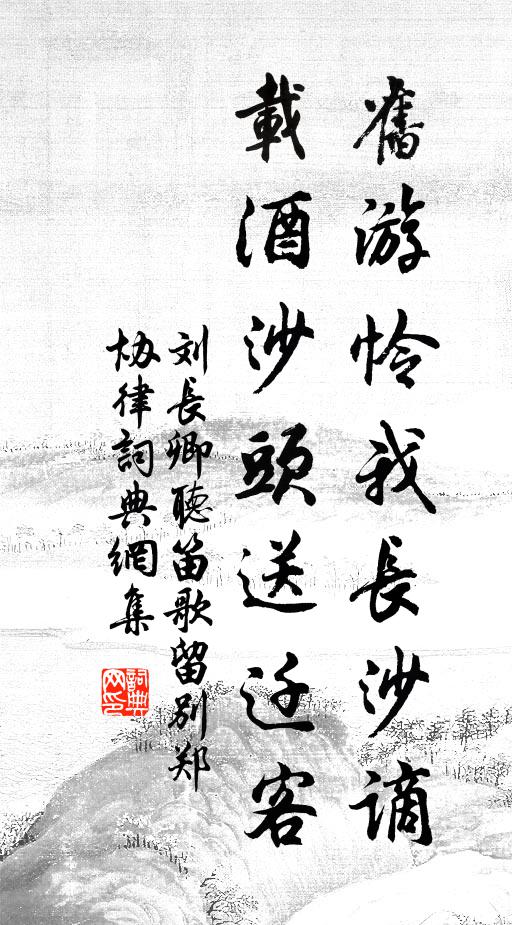 舊游怜我長沙謫
載酒沙頭送迁客
刘長卿聽笛歌留別郑
协律詞典網集
詞典网印